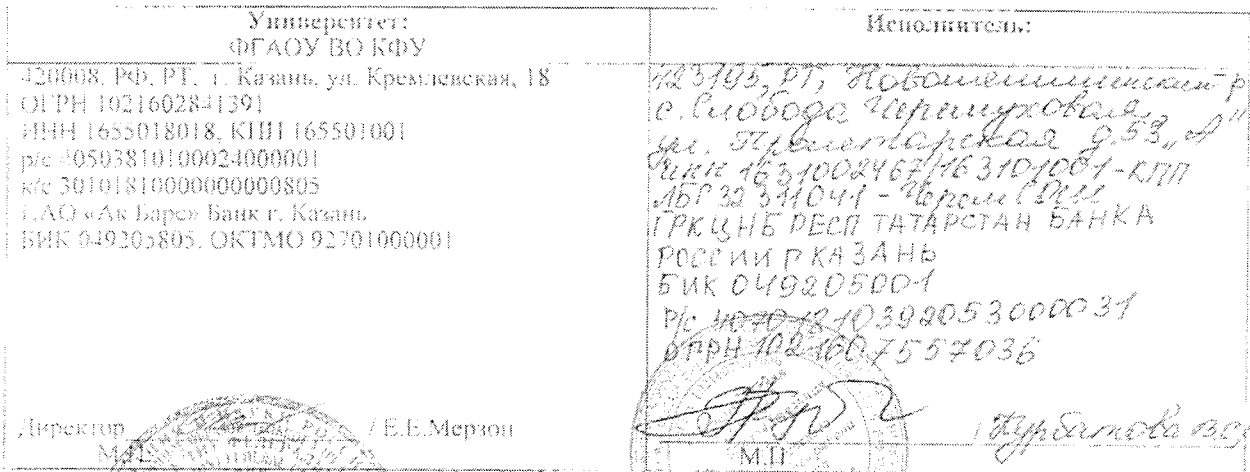 Университет:
ФГАОУ ВО КФУ
420008, РФ, РТ, г. Казань, ул. Кремлевская, 18
ОГРН 1021602841391
ИНН 1655018018, КПП 165501001
р/с 40503810100024000001
к/с 30101810000000000805
ПАО «Ак Барс» Банк г. Казань
БИК 049205805, ОКТМО 92701000001
Директор / Е.Е.Мерзон
М.П.
Исполнитель:
423193, РТ, Новошешминский р
с. Слобода Черемуховая,
ул. Пролетарская д.53 „А"
ИНН 1631002467/163101001-КПП
ЛБГ 32311041 - ЧеремСОШ
ГРКЦ НБ РЕСП ТАТАРСТАН БАНКА
РОССИИ Г КАЗАНЬ
БИК 049205001
Р/с 40701810392053000031
ОГРН 1021607557036
/ Курбатова В.С
М.П